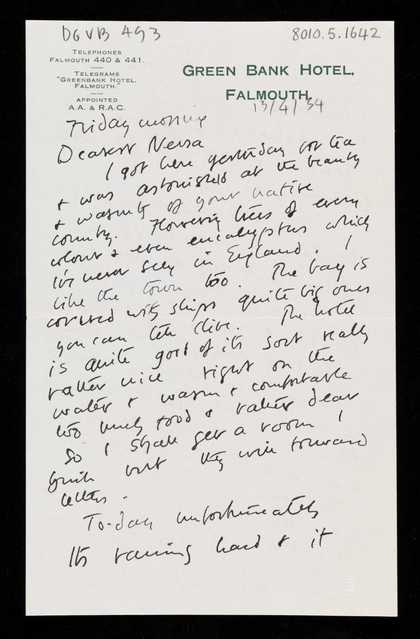 DGVB 493
8010.5.1642
TELEPHONES
FALMOUTH 440 & 441.
TELEGRAMS
"GREENBANK HOTEL,
FALMOUTH."
APPOINTED
A.A. & R.A.C.
GREEN BANK HOTEL,
FALMOUTH.
13/4/34
Friday morning
Dearest Nessa
I got here yesterday for tea
& was astonished at the beauty
& warmth of your native
country. Flowering trees of every
colour & even eucalyptus which
I've never seen in England. I
like the town too. The bay is
covered with ships quite big ones
you can
The hotel
is quite good of its sort really
rather nice right on the
water & warm & comfortable
too much food & rather dear
so I shall get a room I
think but they will forward
letters.
To-day unfortunately
its raining hard & it